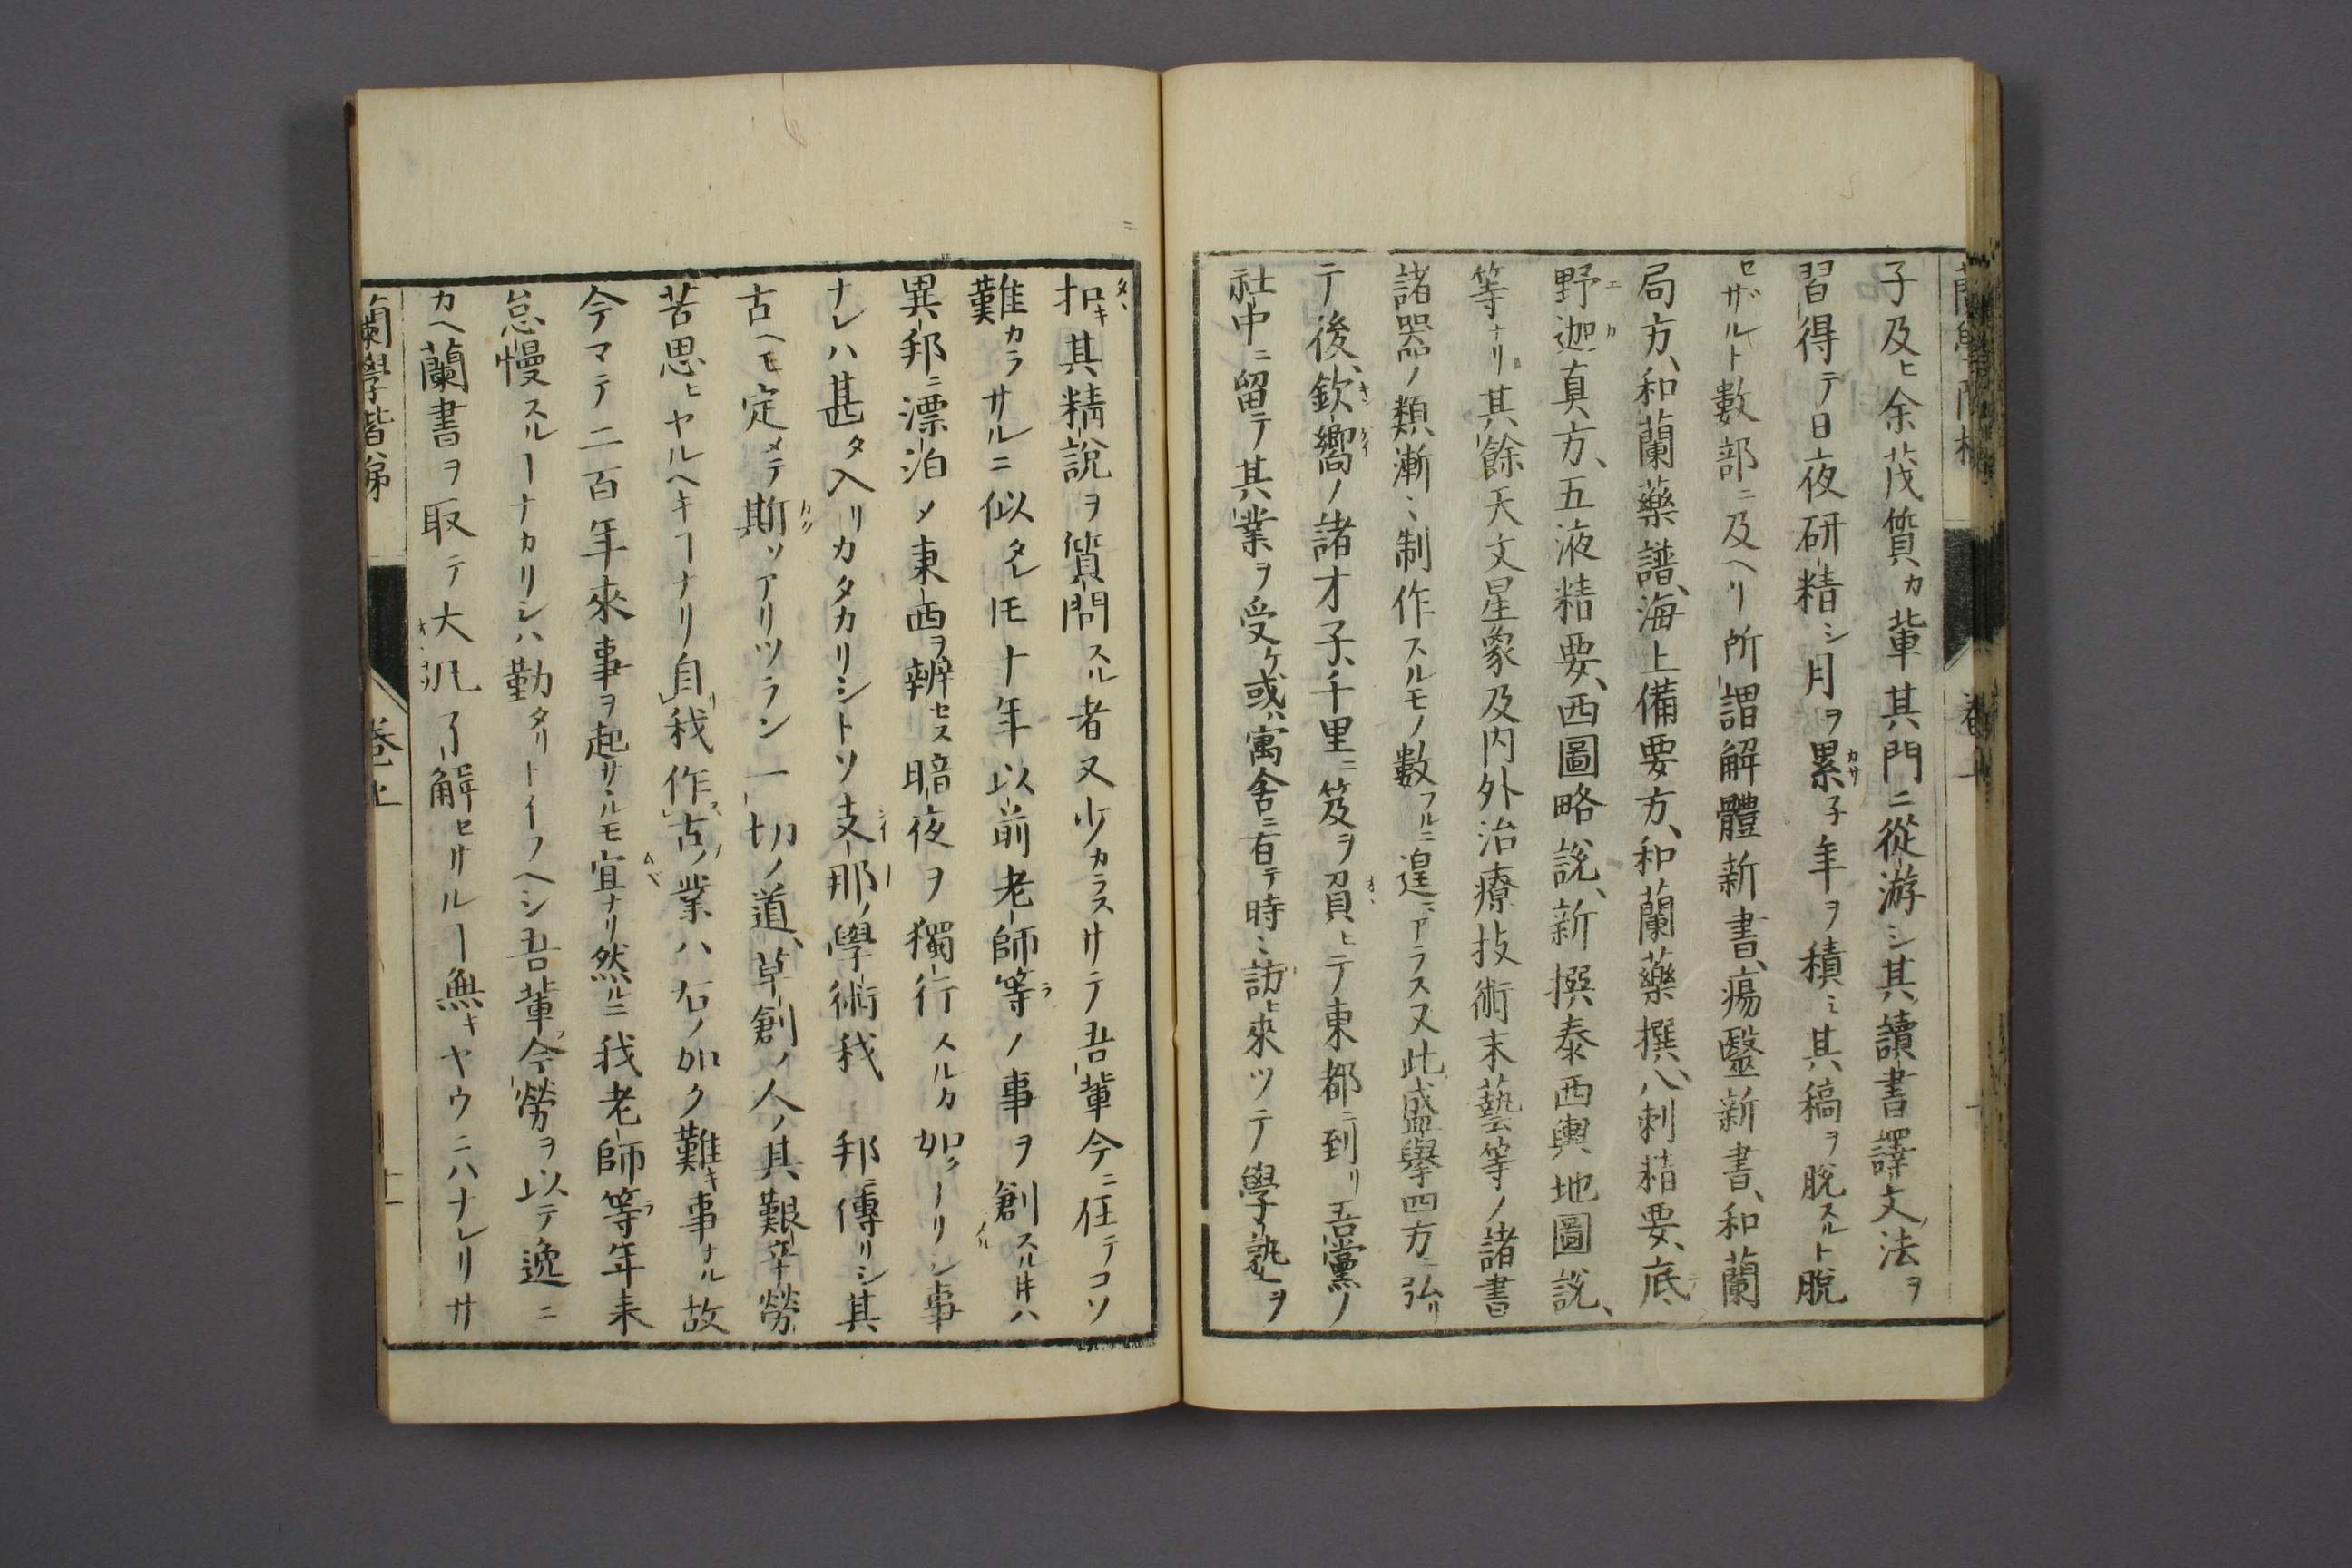 子及ヒ余茂質カ輩其門ニ從游シ其讀書譯文ノ法ヲ
習得テ日夜研精シ月ヲ累子年ヲ積ミ其稿ヲ脫スルト脫
セザルト數部ニ及ヘリ所謂解體新書、瘍醫新書、和蘭
局方、和蘭藥譜、海上備要方、和蘭藥撰、八刺精要、底
野迦真方、五液精要、西圖略說、新撰泰西輿地圖說、
等ナリ其餘天文星象及内外治療技術末藝等ノ諸書
諸器ノ類漸〻制作スルモノ數フルニ遑アラス又此盛擧四方ニ弘リ
テ後、欽嚮ノ諸才子、千里ニ笈ヲ負ヒテ東都ニ到リ吾黨ノ
社中ニ留テ其業ヲ受ケ或ハ寓舍ニ有テ時〻訪ヒ來ツテ學塾ヲ
扣キ其精說ヲ質問スル者又少カラスサテ吾輩今ニ在テコソ
難カラサルニ似タレ𪜈十年以前老師等ノ事ヲ創スル𪜀ハ
異邦ニ漂泊メ東西ヲ辨セス暗夜ヲ獨行スルカ如クノリシ事
ナレハ甚タ入リカタカリシトソ支那ノ學術我邦ニ傳リシ其
古ヘモ定メテ斯ソアリツラン一切ノ道、草創ノ人ノ其艱辛勞
苦思ヒヤルヘキヿナリ自我作古ノ業ハ右ノ如ク難キ事ナル故
今マテ二百年來事ヲ起サヽルモ宜ナリ然ルニ我老師等年来
怠慢スルヿナカリシハ勤タリトイフヘシ吾輩今勞ヲ以テ逸ニ
カヘ蘭書ヲ取テ大汎了解セサルヿ無キヤウニハナレリサ
蘭學階梯 卷上 十一